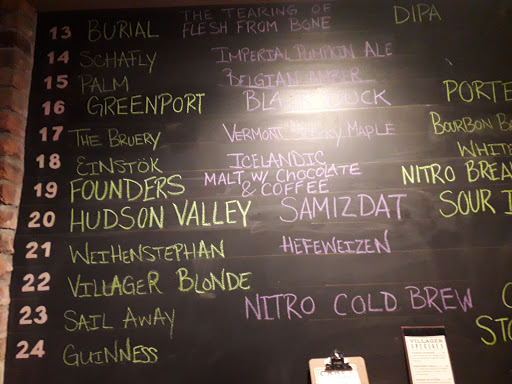 13 BURIAL THE TEARING OF FLESH FROM BONE DIPA
14 SCHAFLY IMPERIAL PUMPKIN ALE
15 PALM BELGIAN AMBER
16 GREENPORT BLACK DUCK PORTE
17 THE BRUERY VERMONT MAPLE BOURBON BA
18 EINSTÖK ICELANDIC WHITE
19 FOUNDERS MALT W/ CHOCOLATE & COFFEE NITRO BREA
20 HUDSON VALLEY SAMIZDAT SOUR I
21 WEIHENSTEPHAN HEFEWEIZEN
22 VILLAGER BLONDE
23 SAIL AWAY NITRO COLD BREW
24 GUINNESS STO
VILLAGER
SPECIALS